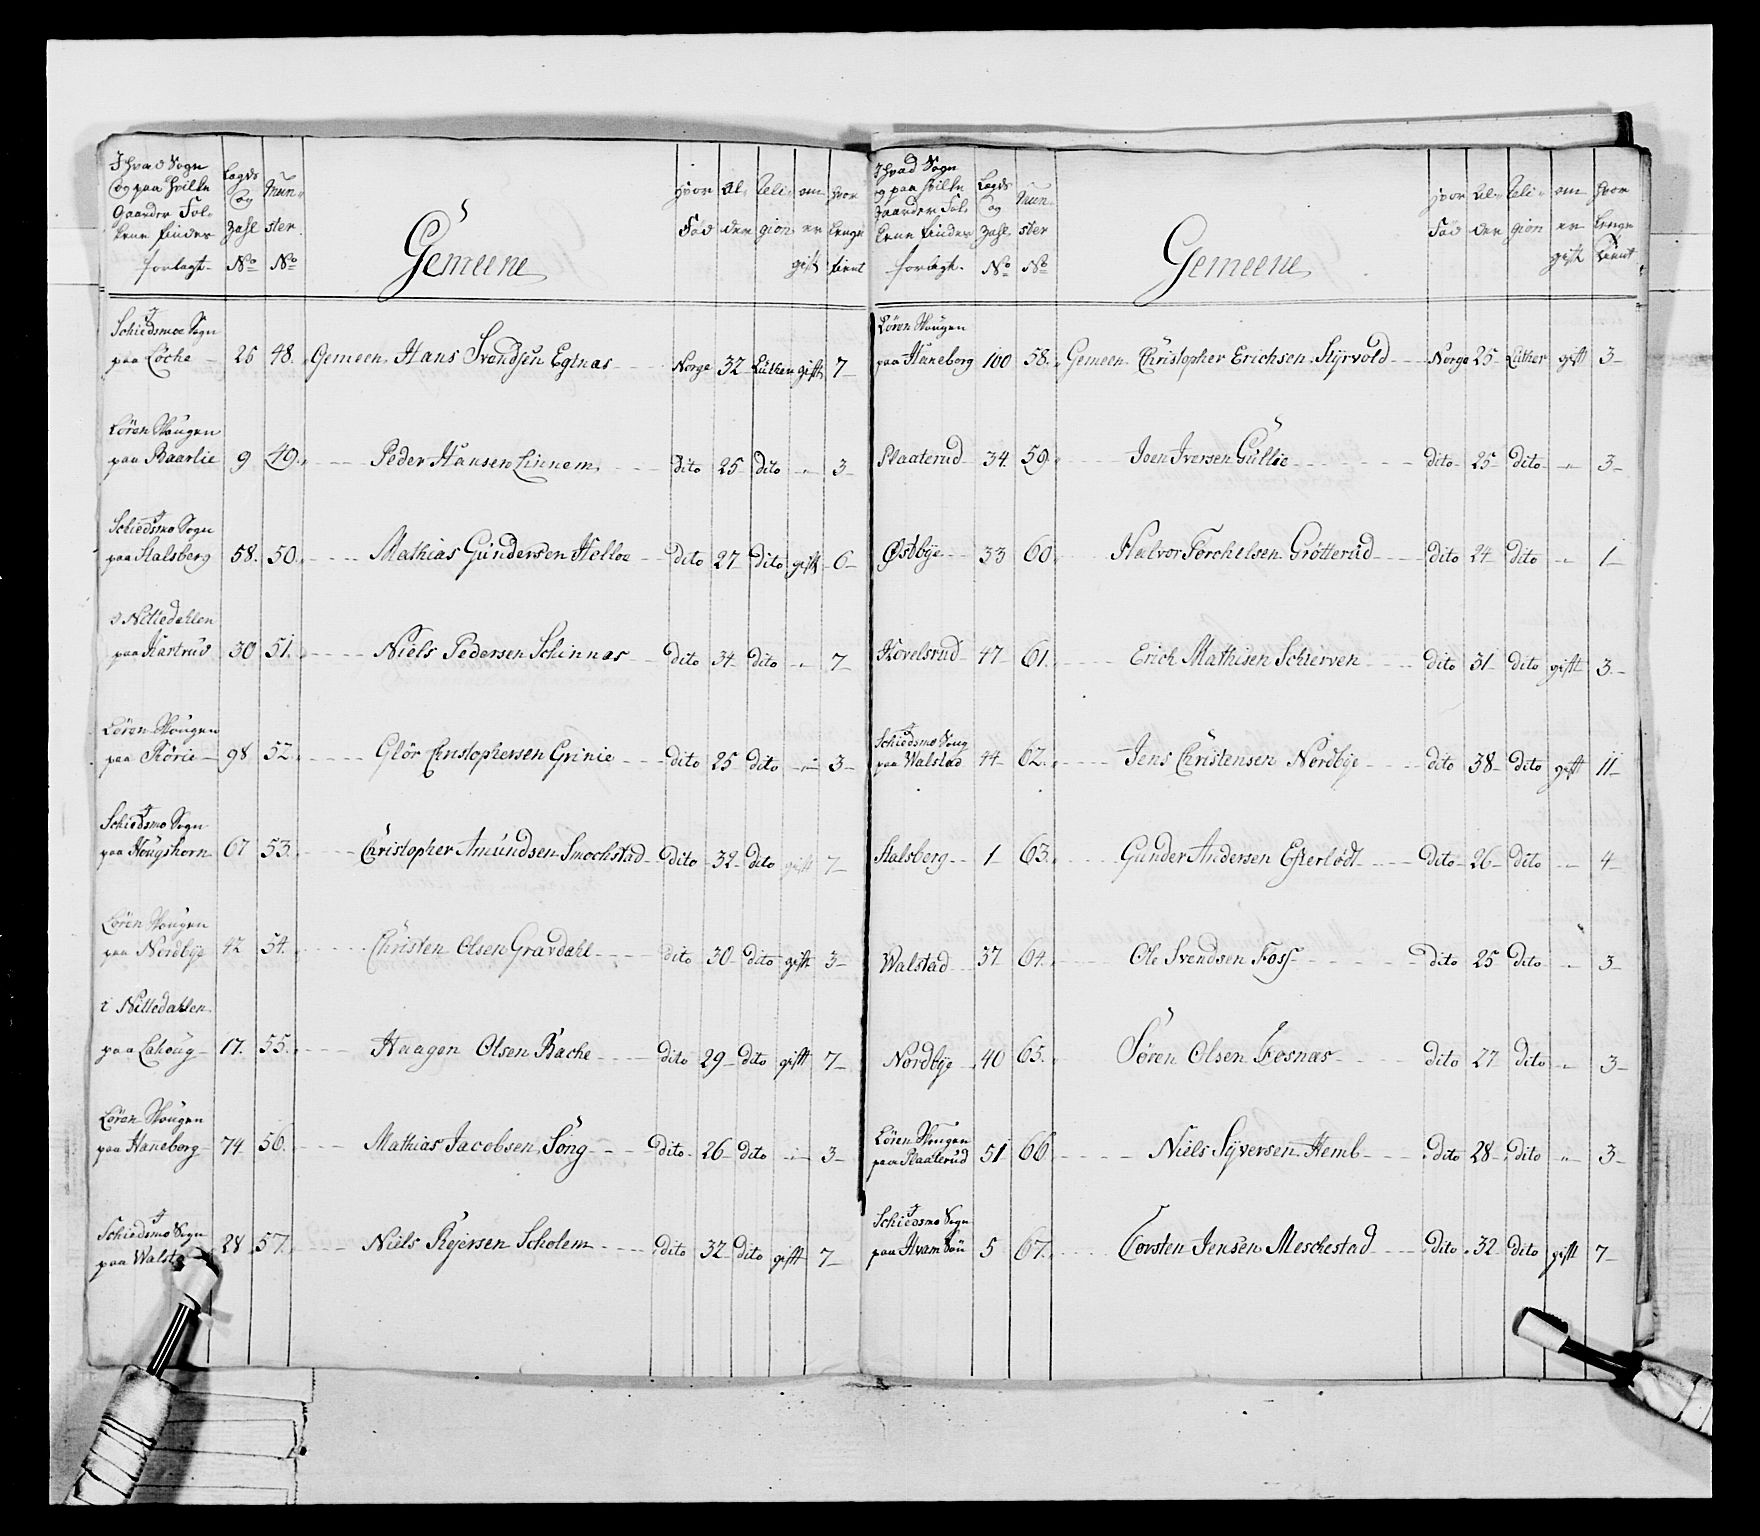 I hvad Sogn
og paa hvilke
Gaarder Fol-
kene findes
forlagt.
Lægds og Zahl No
Mün-ster No
Gemeene
Hvor Fød
Al-der
Reli-gion
om er gift
hvor lenge tient
Schiedsmoe Sogn
paa Löche 26 48. Gemeen Hans Svendsen Egnas Norge 32 Luther gift 7
Lören Skougen
paa Baarlie 9 49. Peder Hansen Linnem dito 25 dito " 3
Schiedsmo Sogn
paa Stalsberg 58. 50. Mathias Gundersen Helloe dito 27 dito gift 6
i Nittedahlen
paa Kastrud 30 51. Niels Pedersen Schinnas dito 34 dito " 7
Lören Skougen
paa Rörie 98 52. Glör Christophersen Grinie dito 25 dito " 3
Schiedsmo Sogn
paa Hougshorn 67 53. Christopher Amundsen Smochstad dito 32 dito gift 7
Lören Skougen
paa Nordbye 42 54. Christen Olsen Gravdahl dito 30 dito gift 3
i Nittedahlen
paa Lahoug 17. 55. Haagen Olsen Bache dito 29 dito gift 7
Lören Skougen
paa Haneborg 74 56. Mathias Jacobsen Song dito 26 dito " 3
Schiedsmo Sogn
paa Walsta 28 57. Niels Rejersen Scholem dito 32 dito gift 7
I hvad Sogn
og paa hvilke
Gaarder Fol-
kene findes
forlagt.
Lægds og Zahl No
Mün-ster No
Gemeene
Hvor Fød
Al-der
Reli-gion
om er gift
hvor lenge tient
Lören Skougen
paa Haneborg 100 58. Gemeen Christopher Erichsen Styrvold Norge 25 Luther gift 3
Raaterud 34. 59 Joen Iversen Gullie dito 25 dito " 3
Østbye 33 60 Halvor Torchelsen Grötterud dito 24 dito " 1
Hovelsrud 47 61. Erich Mathisen Schierven dito 31 dito gift 3
Schiedsmo Sogn
paa Walstad 44 62. Jens Christensen Nordbye dito 38 dito gift 11
Stalsberg 1 63. Gunder Andersen Efterlödt dito 26 dito " 4
Walstad 37 64. Ole Svendsen Foss dito 25 dito " 3
Nordbye 40 65. Søren Olsen Fosnas dito 27 dito " 3
Lören Skougen
paa Raaterud 51 66 Niels Syversen Hemb dito 28 dito " 3
Schiedsmo Sogn
paa Hvam Søn 5 67. Torsten Jensen Meschestad dito 32 dito gift 7